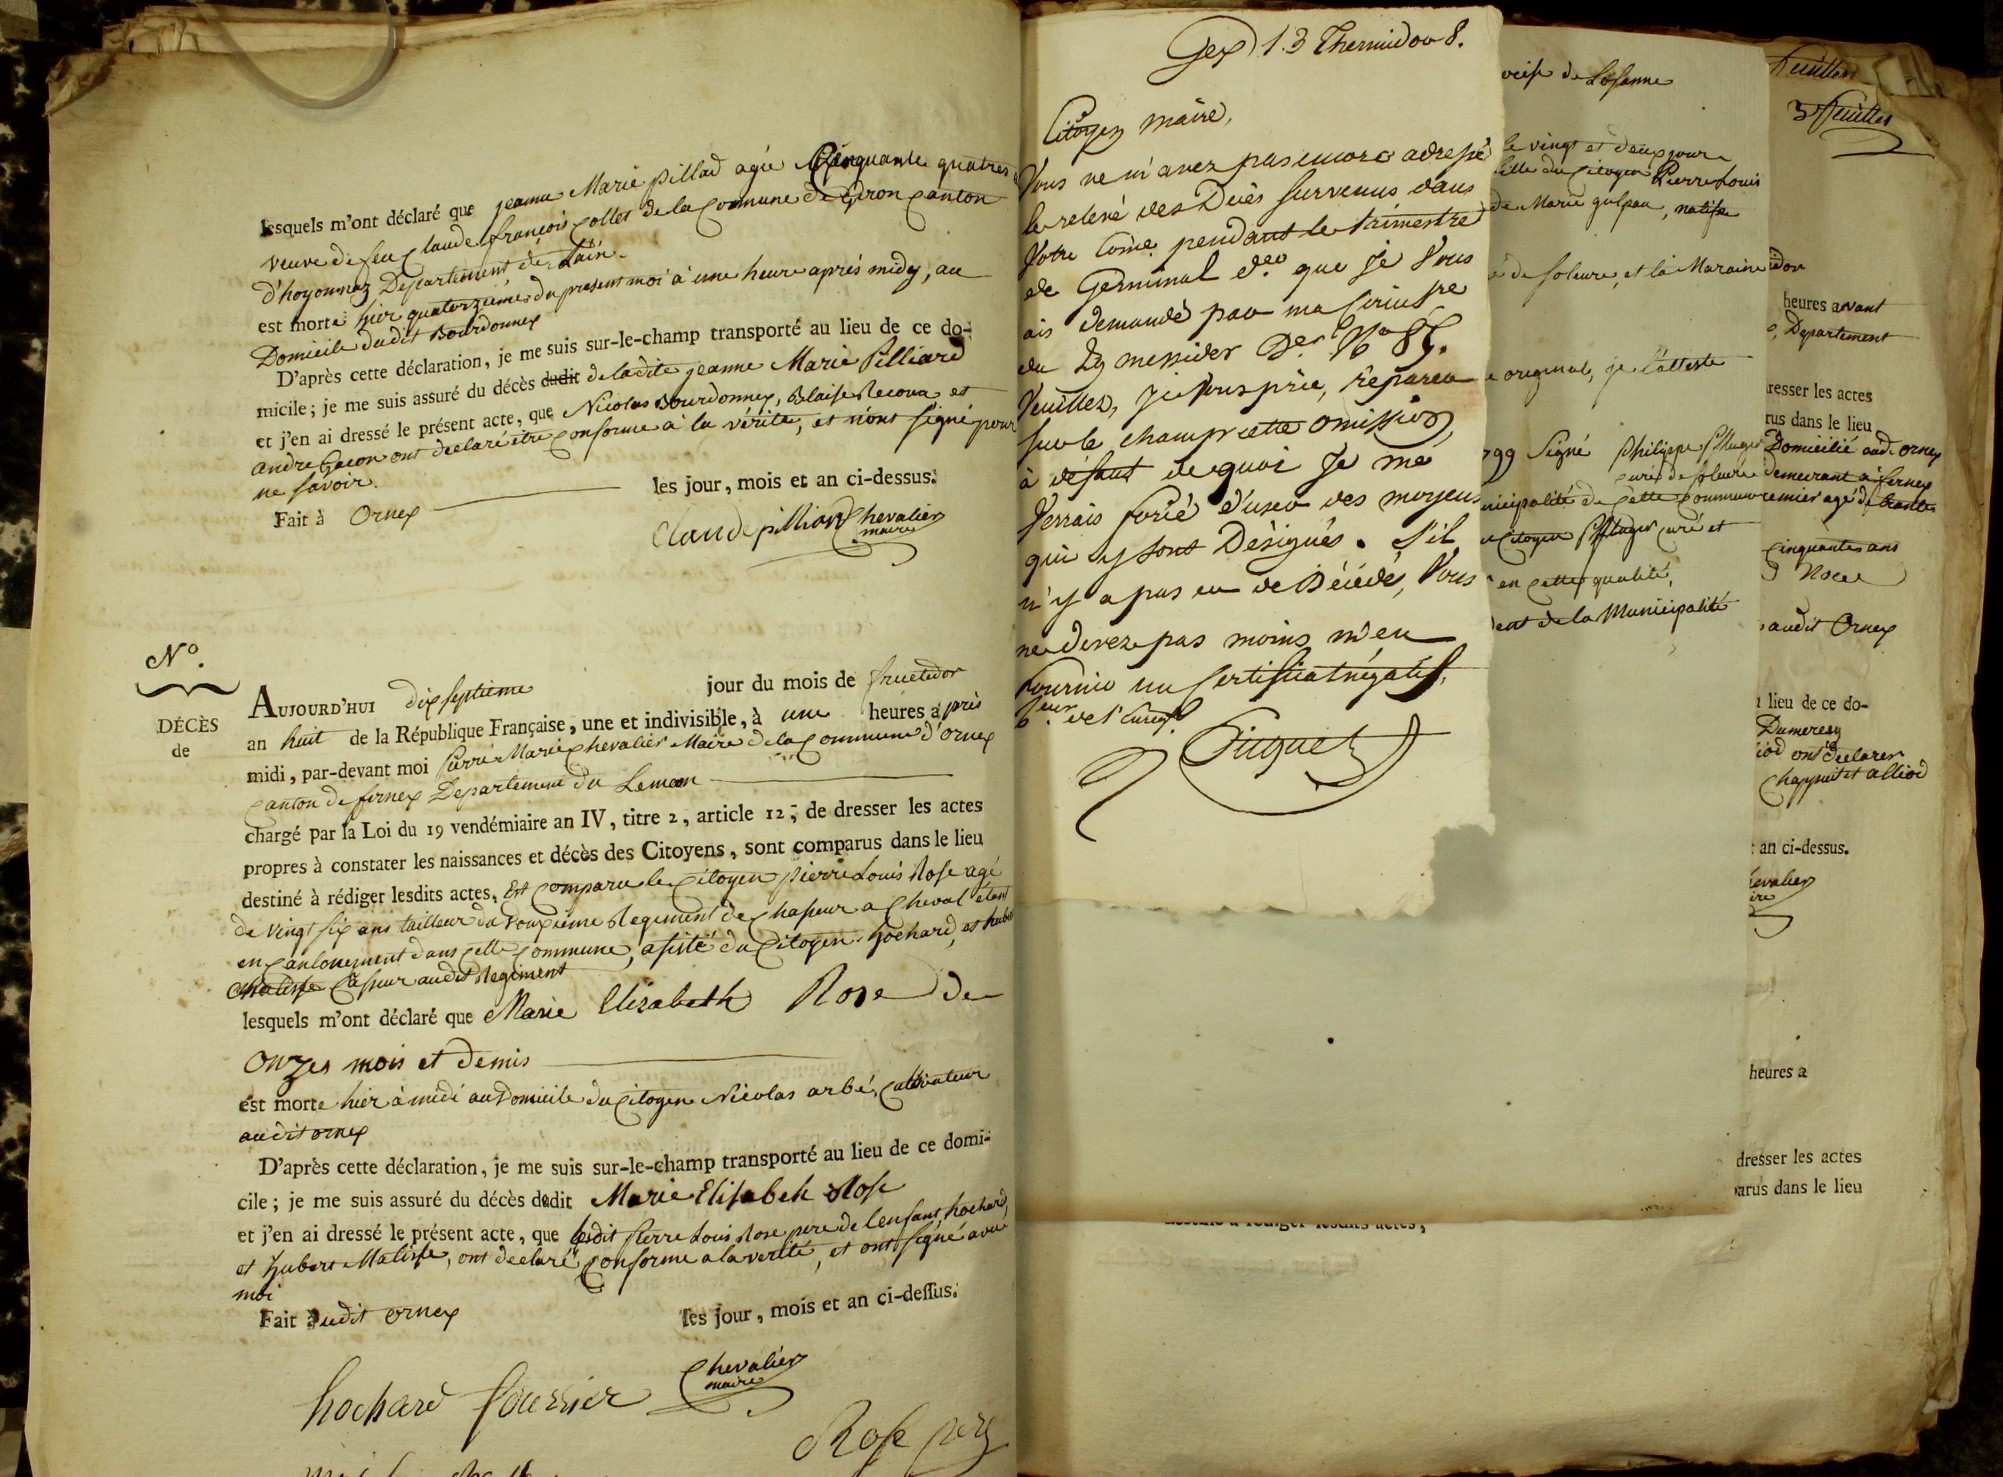 lesquels m'ont déclaré que jeanne Marie pillad agée Cinquante quatres
veuve de feu Claude françois Collet de la Commune de Giron Canton
d'hoyonnaz Departement de Lain.
est morte hier quatorzieme du present moi à une heure après midy, au
Domicile dudit Bourdonnex
D'après cette déclaration, je me suis sur-le-champ transporté au lieu de ce do-
micile; je me suis assuré du décès dudit de ladite jeanne Marie Pilliard
et j'en ai dressé le présent acte, que Nicolas Bourdonnex, Blaise Recoua et
andre Gacon ont declaré être Conforme a la vérité, et n'ont signé pour
ne savoir.
Fait à Ornex les jour, mois et an ci-dessus.
Claude pillion Chevalier
maire
N°.
DÉCÈS
de
AUJOURD'HUI dix septieme jour du mois de fructidor
an huit de la République Française, une et indivisible, à une heures après
midi, par-devant moi Pierre Marie Chevalier Maire de la Commune d'Ornex
Canton de fernex Departement du Leman
chargé par la Loi du 19 vendémiaire an IV, titre 2, article 12, de dresser les actes
propres à constater les naissances et décès des Citoyens, sont comparus dans le lieu
destiné à rédiger lesdits actes, Est Comparu le Citoyen pierre Louis Rose agé
de vingt six ans tailleur du Douzieme Regiment de Chaseur a Cheval étant
en Cantonement dans cette Commune, asisté du Citoyen hochard, et hubert
Maliste Chaseur audit Regiment
lesquels m'ont déclaré que Marie Elizabeth Rose de
Onzes mois et demis
est morte hier à midi au Domicile du Citoyen Nicolas arbé, Cultivateur
audit ornex
D'après cette déclaration, je me suis sur-le-champ transporté au lieu de ce domi-
cile; je me suis assuré du décès dudit Marie Elisabeh Rose
et j'en ai dressé le présent acte, que ledit Pierre Louis Rose pere de l'enfant, hochard,
et hubert Maliste, ont declaré Conforme a la verité, et ont signé avec
moi
Fait audit ornex les jour, mois et an ci-dessus.
Chevalier
maire
hochard fourrier
Rose pere
Gex 13 Thermidor 8.
Citoyen maire,
Vous ne m'avez pas encore adressé
le relevé des Décès survenus dans
Votre Com.ne pendant le trimestre
de Germinal d.er que je Vous
ais demandé par ma Circul.re
du messidor D.er N° 85.
Veuillez, je Vous prie, réparer
sur le champ cette omission,
à defaut de quoi Je me
Verrais forcé d'user des moyens
qui y sont Désignés. S'il
n'y a pas eu de Décédés, Vous
ne devez pas moins m'en
fournir un Certificat négatif.
de l'Enreg.t
de Losanne
le vingt et deux jour
fille du Citoyen Pierre Louis
de Marie gulpau, native
de soleure, et la Maraine
original, je l'atteste
799 Signé Philippe
curé de soleure
nicipalité de cette Commune
Citoyen curé et
en cette qualité,
dent de la Municipalité
feuillet
3 feuillet
idor
heures avant
Departement
dresser les actes
rus dans le lieu
Domicilié aud. ornex
demeurant a fernex
remier agé de trante
Cinquantes ans
audit Ornex
u lieu de ce do-
Dumerey
iod ont declarer
Chapuit et alliod
t an ci-dessus.
hevalier
ire
heures a
dresser les actes
parus dans le lieu
destiné à rédiger lesdits actes,